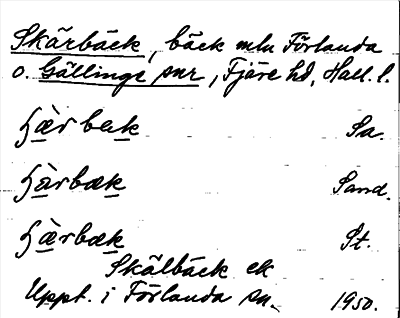 Skärbäck, bäck mln Förlanda
o. Gällinge snr, Fjäre hd, Hall. l.
ʃæ̀r bæk Sa.
ʃàrbæk Sand.
ʃæ̀rbæk St.
Skälbäck ek
Uppt. i Förlanda sn. 1950.